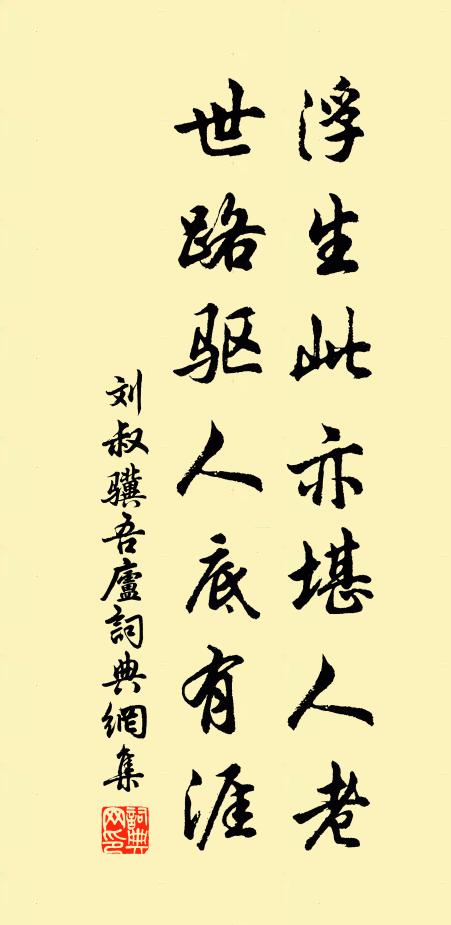 浮生此亦堪人老
世路驱人底有涯
刘叔骥吾廬詞典網集
詞典网印